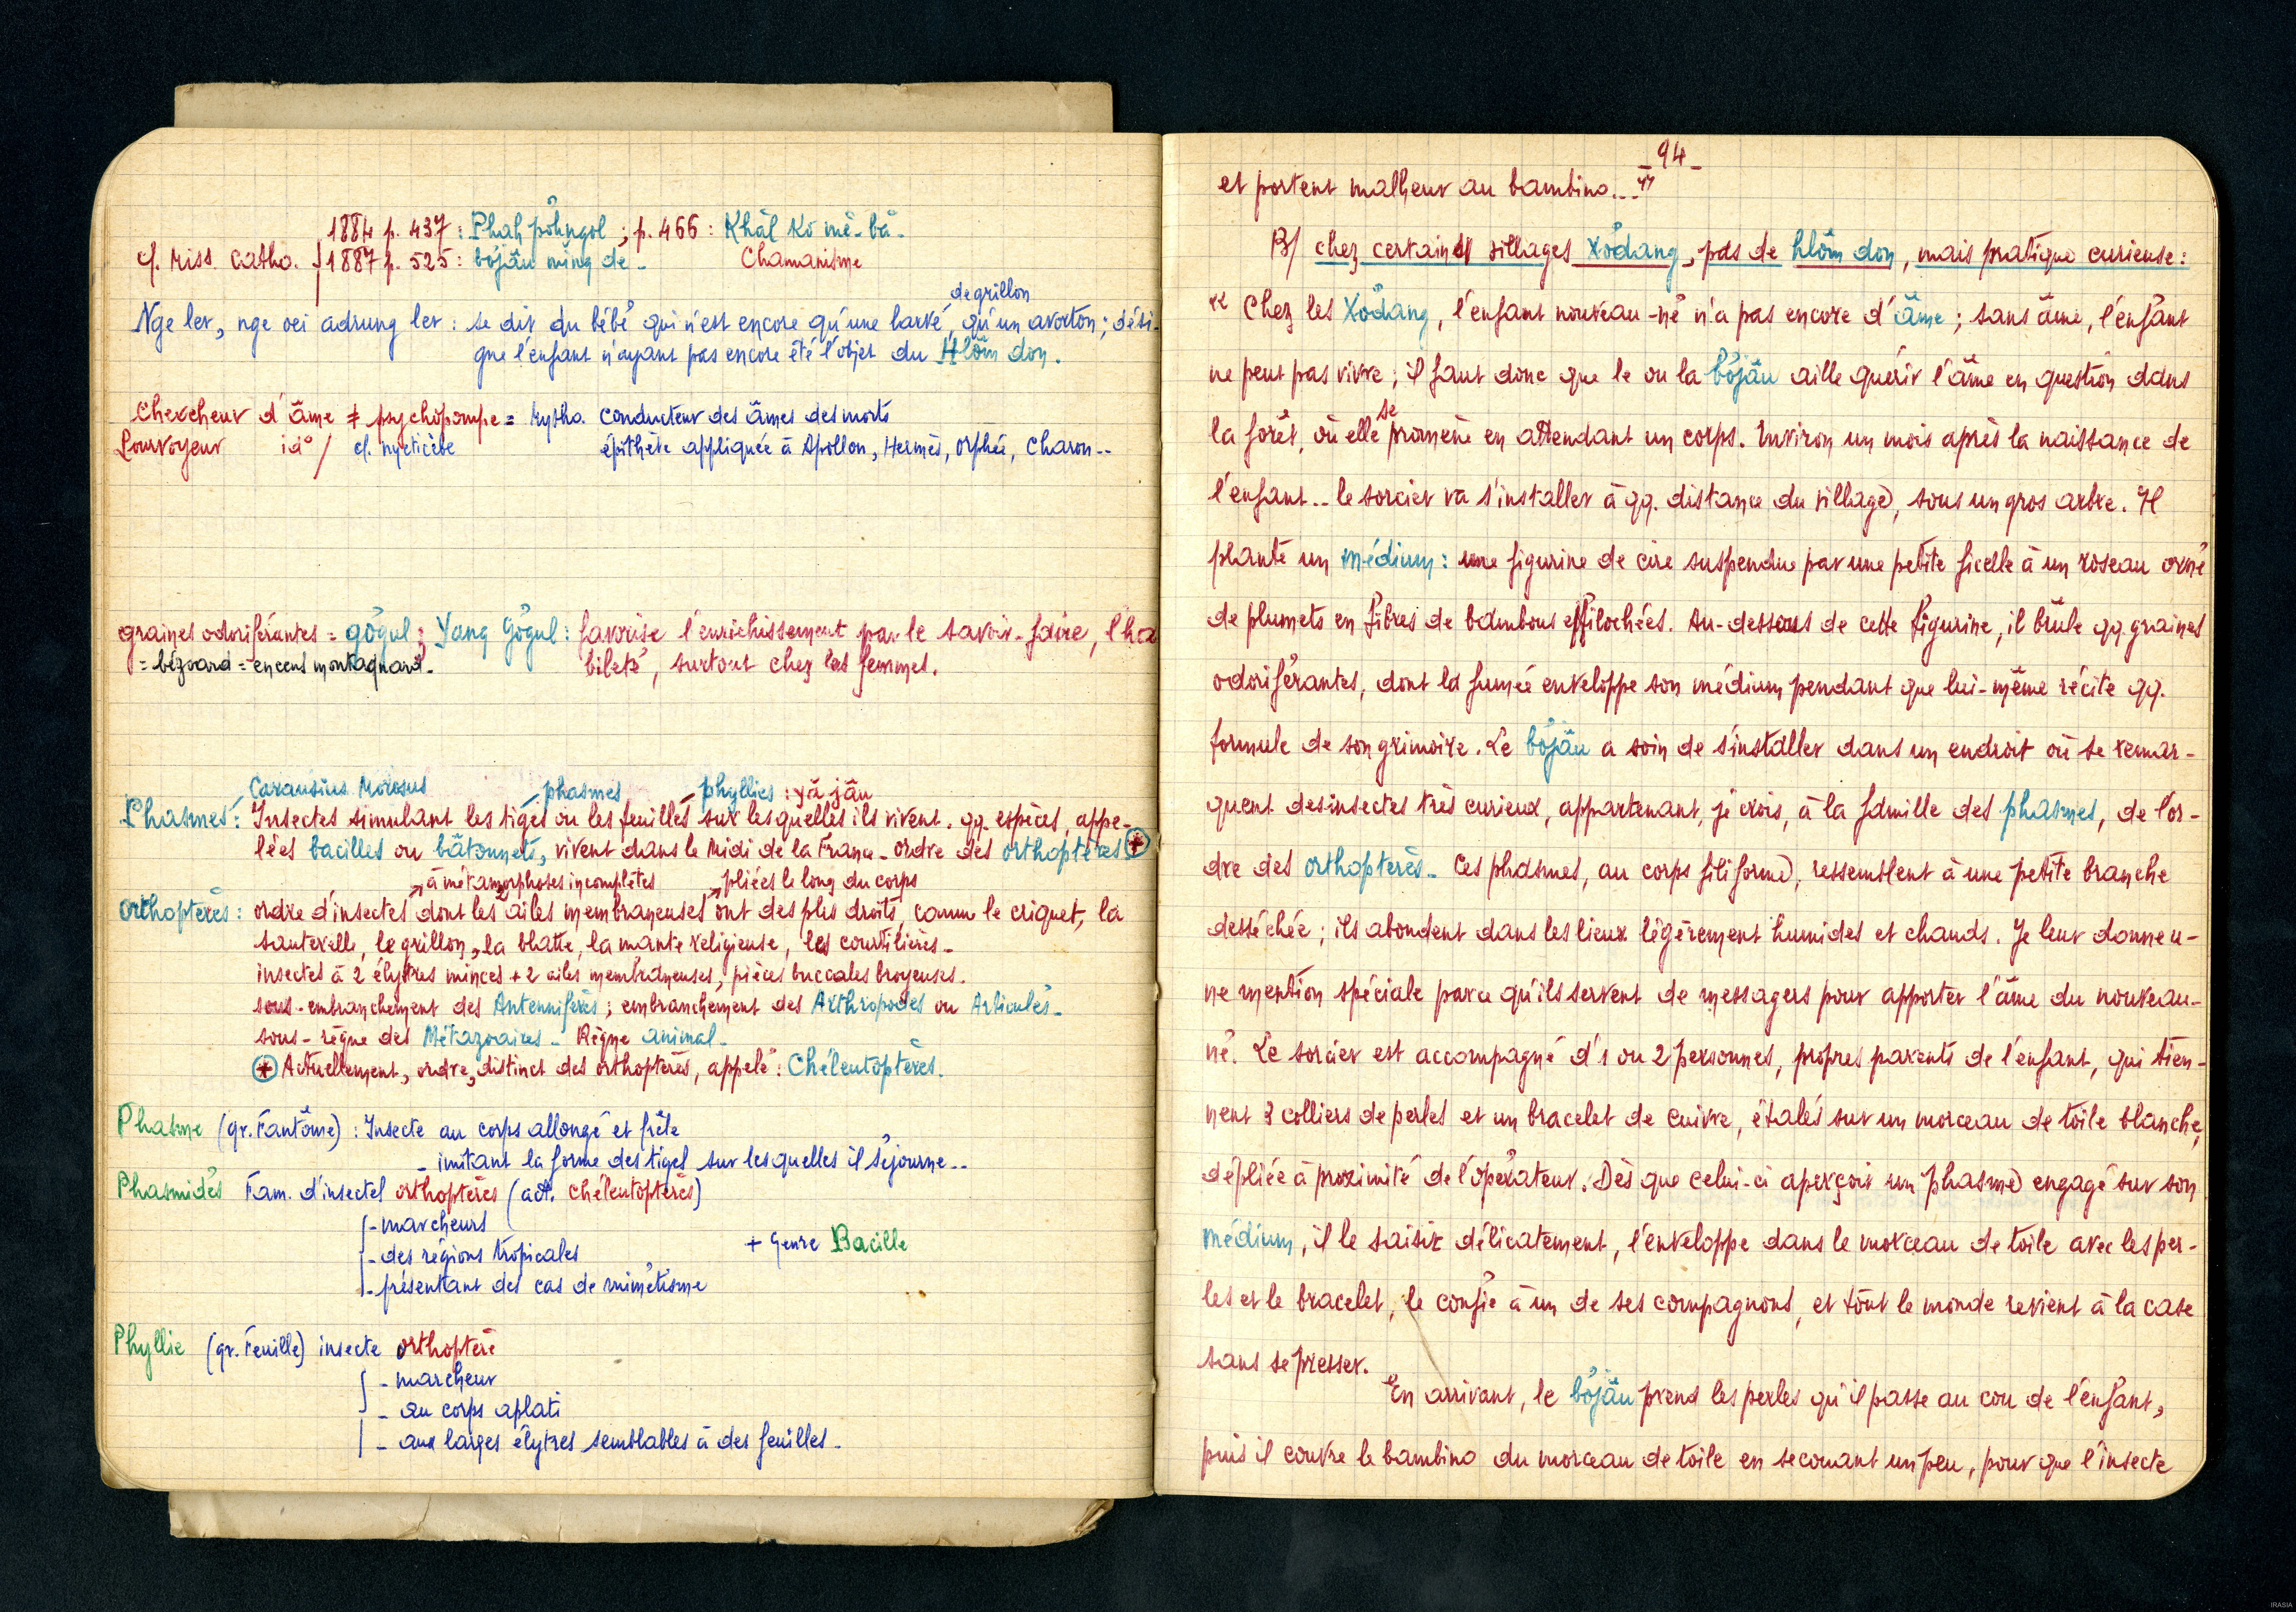 1884 p. 437 : Phah pơ̆hngol ; p. 466 : Khăl Kô mê-bă -
cf. Miss. Catho. 1887 p. 525 : bơjâu ming de - Chamanisme
de grillon
Nge ler, nge oei adrung ler : se dit du bébé qui n'est encore qu'une larve, qu'un avorton ; dési-
gne l'enfant n'ayant pas encore été l'objet du Hlôm don.
Chercheur d'âme ≠ psychopompe = Mytho. conducteur des âmes des morts
Pourvoyeur id° / cf. nycticèbe épithète appliquée à Apollon, Hermès, Orphée, Charon--
graines odoriférantes = gơ̆gul ; Yang Gơ̆gul : favorise l'enrichissement par le savoir-faire, l'ha
= bézoard = encens montagnard. bileté, surtout chez les femmes.
Carausius Morosus phasmes phyllies : yă jâu
Phasmes : Insectes simulant les tiges ou les feuilles sur lesquelles ils vivent. qq. espèces, appe-
lées bacilles ou bâtonnets, vivent dans le Midi de la France - ordre des orthoptères +
à métamorphoses incomplètes pliées le long du corps
Orthoptères : ordre d'insectes dont les 2 ailes membraneuses ont des plis droits, comme le criquet, la
sauterelle, le grillon, la blatte, la mante religieuse, les courtilières -
insectes à 2 élytres minces + 2 ailes membraneuses, pièces buccales broyeuses.
sous-embranchement des Antennifères ; embranchement des Arthropodes ou Articulés -
sous-règne des Métazoaires - Règne animal -
+ Actuellement, ordre, distinct des orthoptères, appelé : Chéleutoptères.
Phasme (gr. Fantôme) : Insecte au corps allongé et frêle
- imitant la forme des tiges sur lesquelles il séjourne --
Phasmidés Fam. d'insectes orthoptères (act. chéleutoptères)
- marcheurs
- des régions tropicales + genre Bacille
- présentant des cas de mimétisme
Phyllie (gr. Feuille) insecte orthoptère
- marcheur
- au corps aplati
- aux larges élytres semblables à des feuilles -
- 94 -
et portent malheur au bambino... "
B/ chez certains villages Xơ̆dang, pas de hlôm don, mais pratique curieuse :
" Chez les Xơ̆dang, l'enfant nouveau-né n'a pas encore d'âme ; sans âme, l'enfant
ne peut pas vivre ; il faut donc que le ou la bơjâu aille quérir l'âme en question dans
la forêt, où elle se promène en attendant un corps. Environ un mois après la naissance de
l'enfant -- le sorcier va s'installer à qq. distance du village, sous un gros arbre. Il
plante un médium : une figurine de cire suspendue par une petite ficelle à un roseau orné
de plumets en fibres de bambous effilochées. Au-dessous de cette figurine, il brûle qq. graines
odoriférantes, dont la fumée enveloppe son médium pendant que lui-même récite qq.
formule de son grimoire. Le bơjâu a soin de s'installer dans un endroit où se remar-
quent des insectes très curieux, appartenant, je crois, à la famille des phasmes, de l'or-
dre des orthoptères - Ces phasmes, au corps filiforme, ressemblent à une petite branche
desséchée ; ils abondent dans les lieux légèrement humides et chauds. Je leur donne u-
ne mention spéciale parce qu'ils servent de messagers pour apporter l'âme du nouveau-
né. Le sorcier est accompagné d'1 ou 2 personnes, propres parents de l'enfant, qui tien-
nent 3 colliers de perles et un bracelet de cuivre, étalés sur un morceau de toile blanche,
dépliée à proximité de l'opérateur. Dès que celui-ci aperçoit un phasme engagé sur son
médium, il le saisit délicatement, l'enveloppe dans le morceau de toile avec les per-
les et le bracelet, le confie à un de ses compagnons, et tout le monde revient à la case
sans se presser.
En arrivant, le bơjâu prend les perles qu'il passe au cou de l'enfant,
puis il couvre le bambino du morceau de toile en secouant un peu, pour que l'insecte
IRASIA